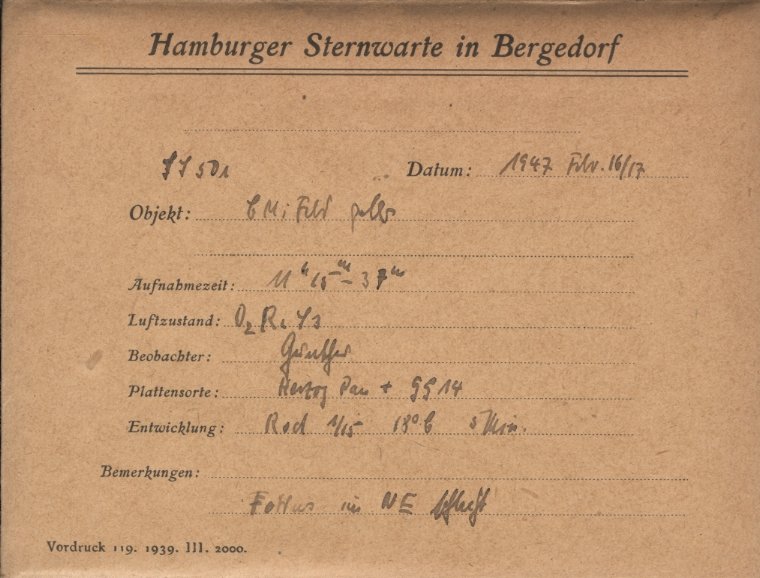 Hamburger Sternwarte in Bergedorf
Datum: 1947 Febr. 16/17
Objekt: Feld gelb
Aufnahmezeit: 11ʰ 15ᵐ – 37ᵐ
Luftzustand:
Beobachter: Günther
Plattensorte: Herzog Pan + GG 14
Entwicklung: Rod 1/15 18° C 5 Min.
Bemerkungen:
Fokus im NE schlecht
Vordruck 119. 1939. III. 2000.